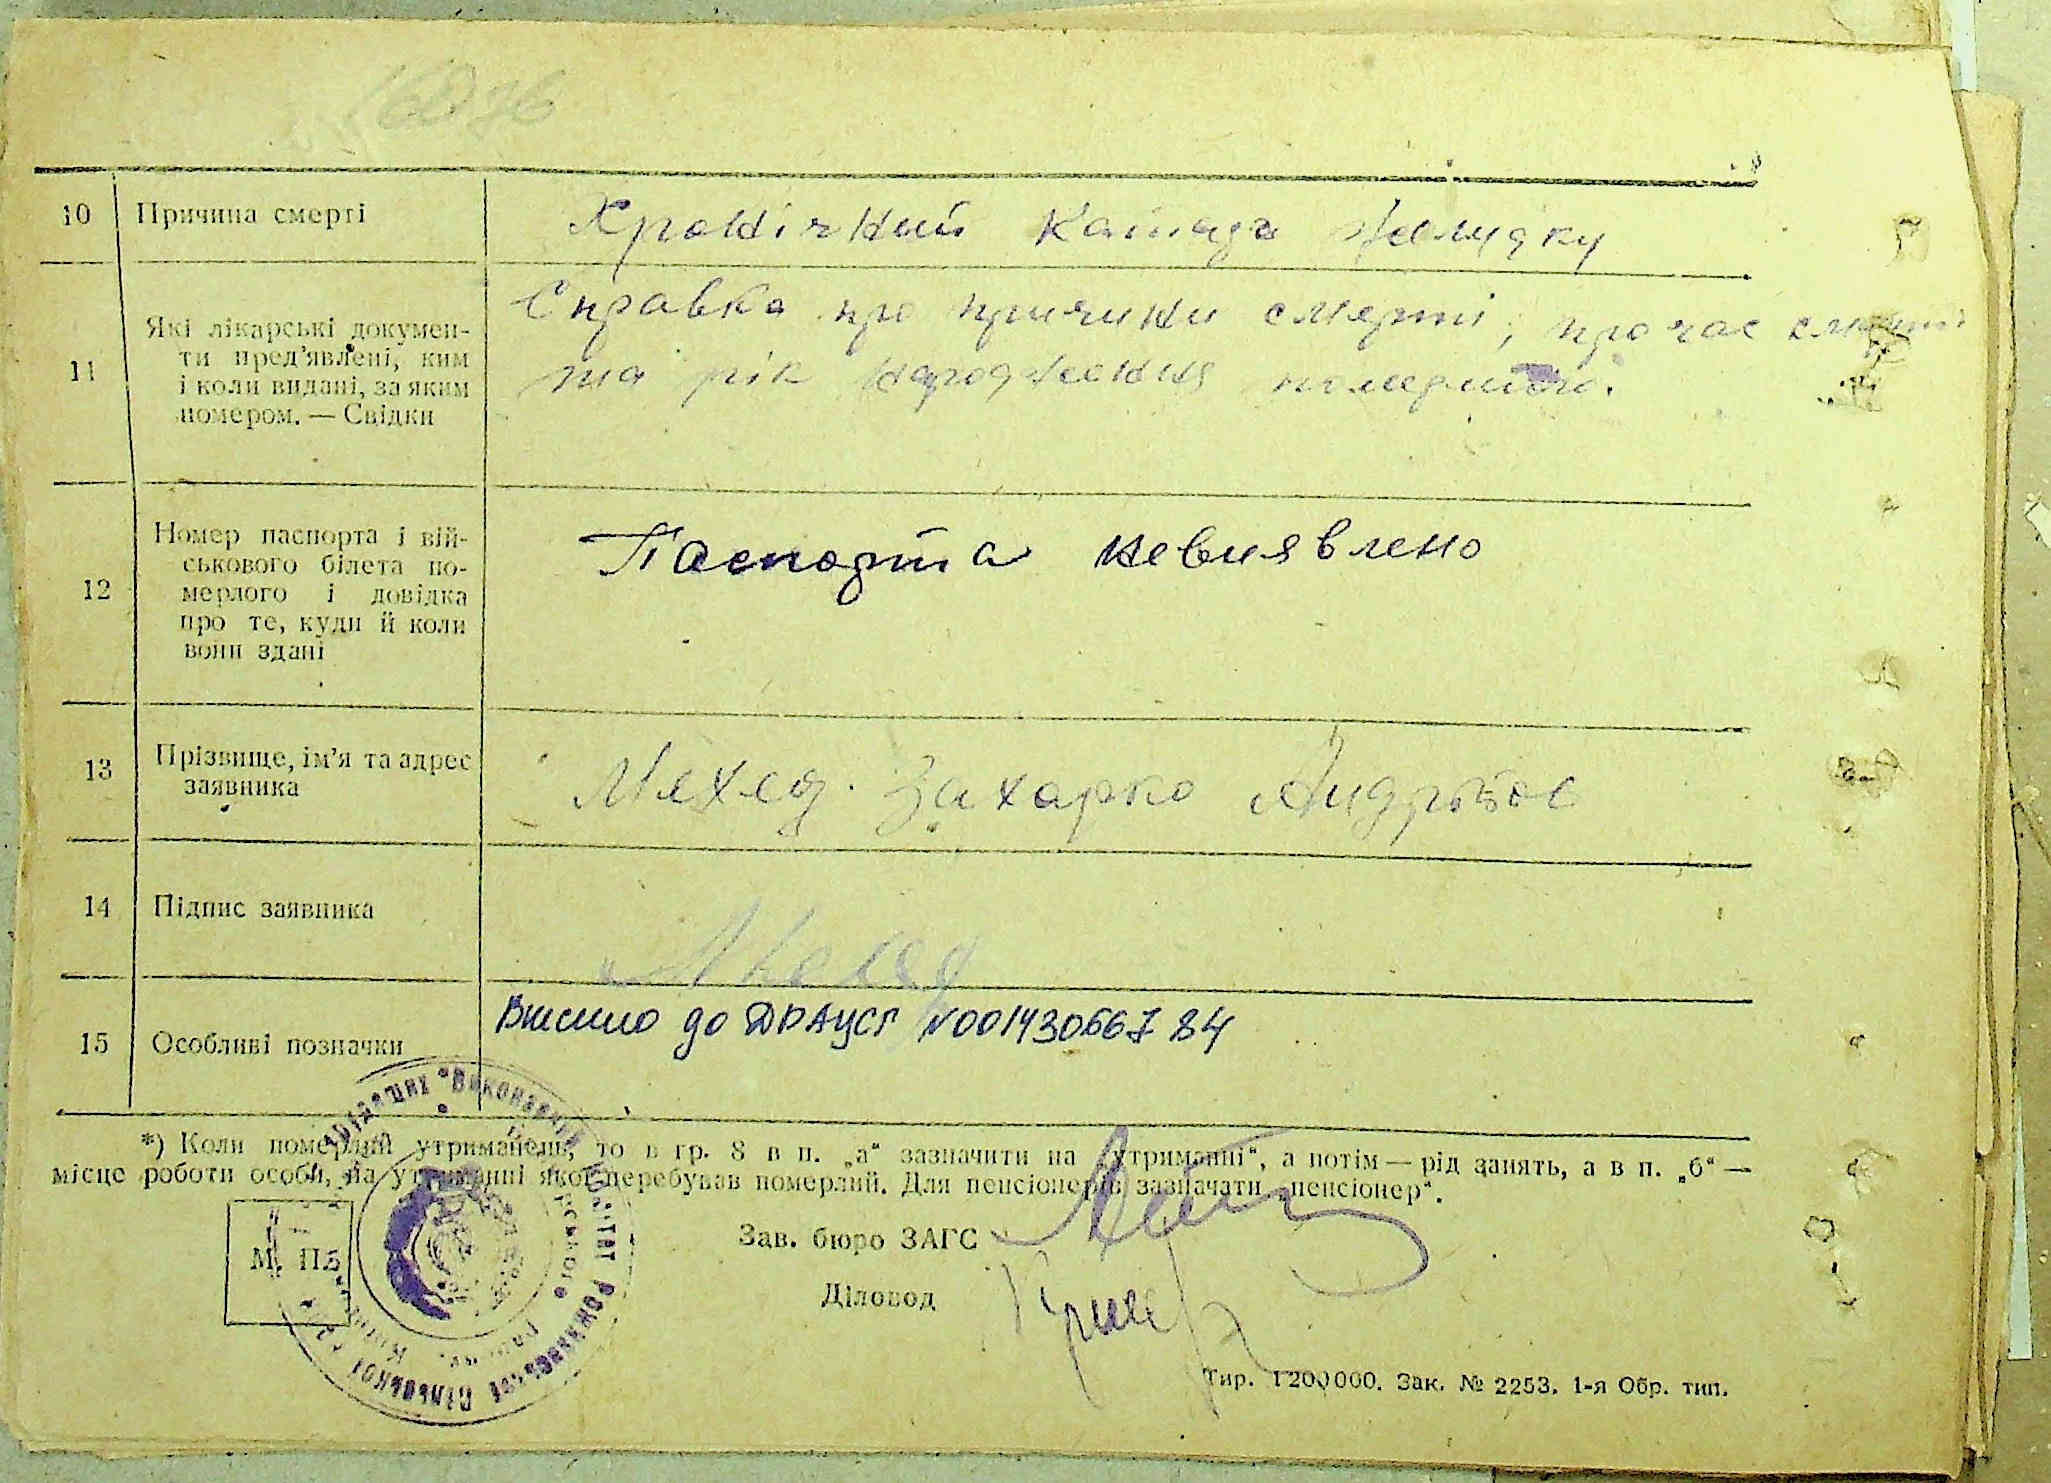 10 Причина смерті
Хронічний Катар желудку
11 Які лікарські докумен-
ти пред'явлені, ким
і коли видані, за яким
номером. — Свідки
Справка про причини смерті, про час смерті
та рік народження померлого.
12 Номер паспорта і вій-
ськового білета по-
мерлого і довідка
про те, куди й коли
вони здані
Паспорта невиявлено
13 Прізвище, ім'я та адрес
заявника
Мехед Захарко
14 Підпис заявника
15 Особливі позначки
Внесено до ДРАЦСГ N00143066784
*) Коли померлий утриманець, то в гр. 8 в п. „а“ зазначити на утриманні“, а потім — рід занять, а в п. „б“ —
місце роботи особи, на утриманні якої перебував померлий. Для пенсіонерів зазначати „пенсіонер“.
М. П.
Зав. бюро ЗАГС
Діловод
Тир. 1200000. Зак. № 2253. 1-я Обр. тип.